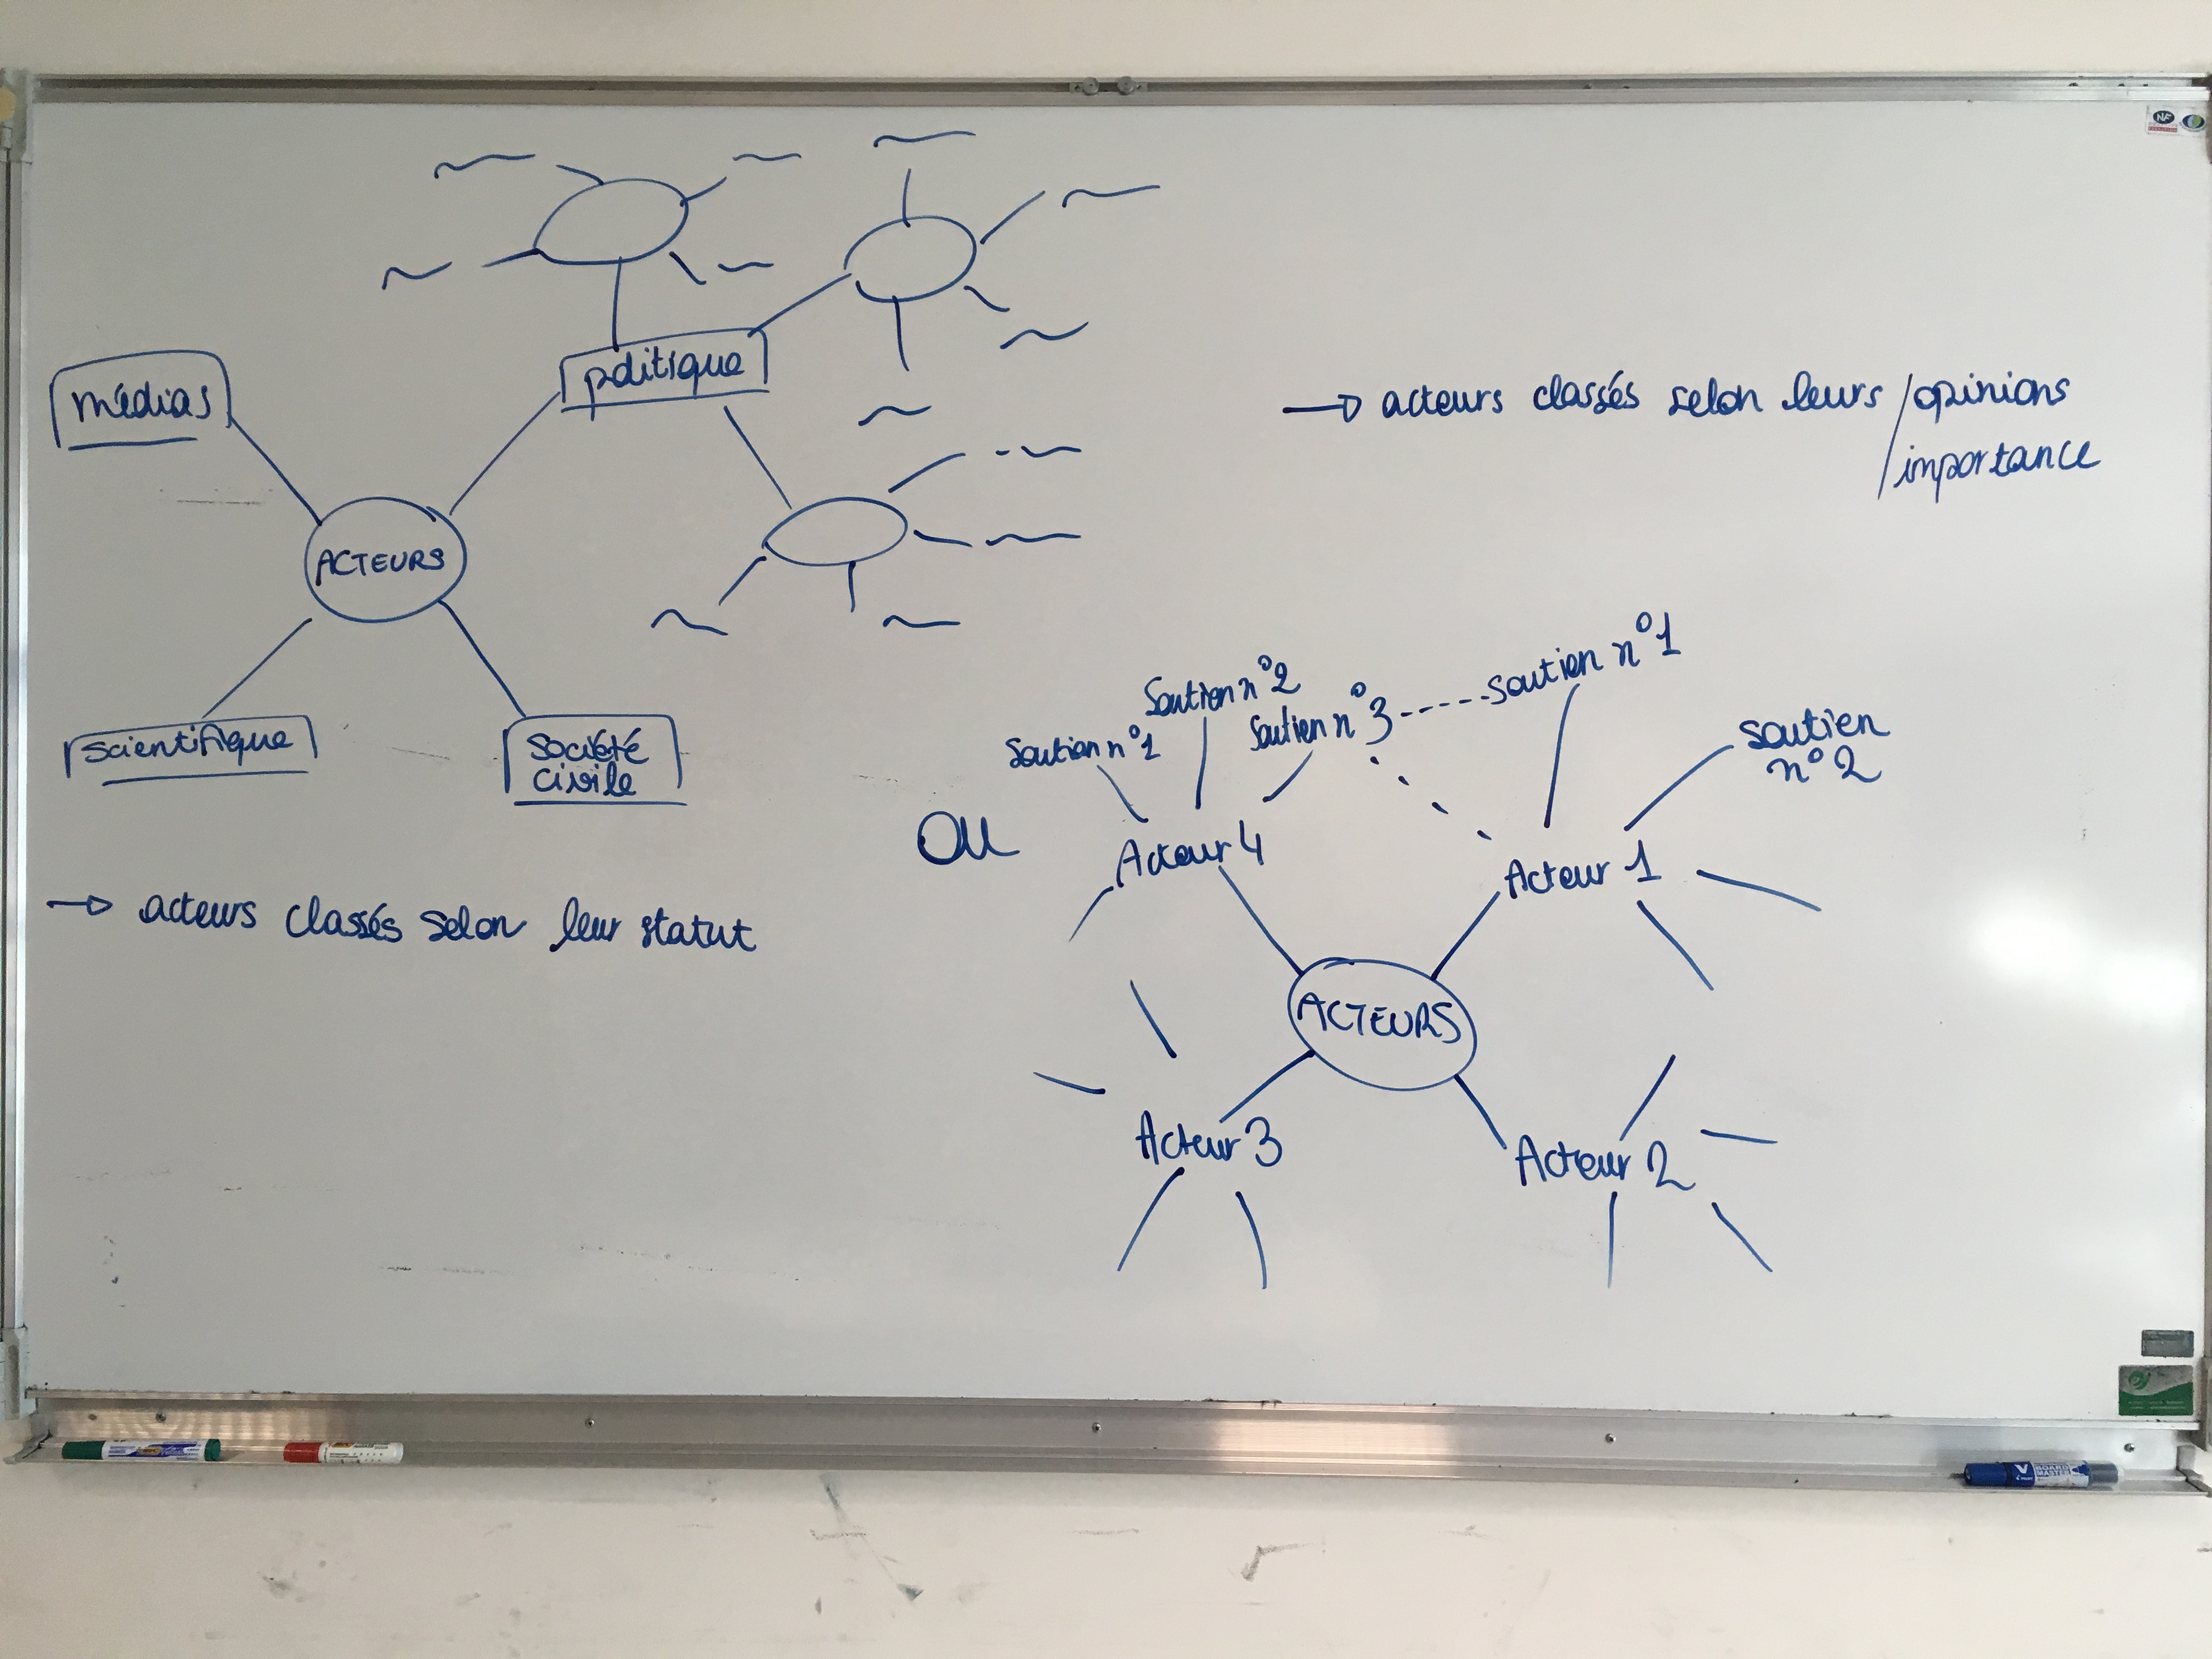 médias
politique
ACTEURS
scientifique
société
civile
→ acteurs classés selon leur statut
OU
→ acteurs classés selon leurs / opinions
/ importance
Soutien n°1
Soutien n°2
Soutien n°3
soutien n°1
soutien
n°2
Acteur 4
Acteur 1
ACTEURS
Acteur 3
Acteur 2
NF
V
BOARD
MASTER